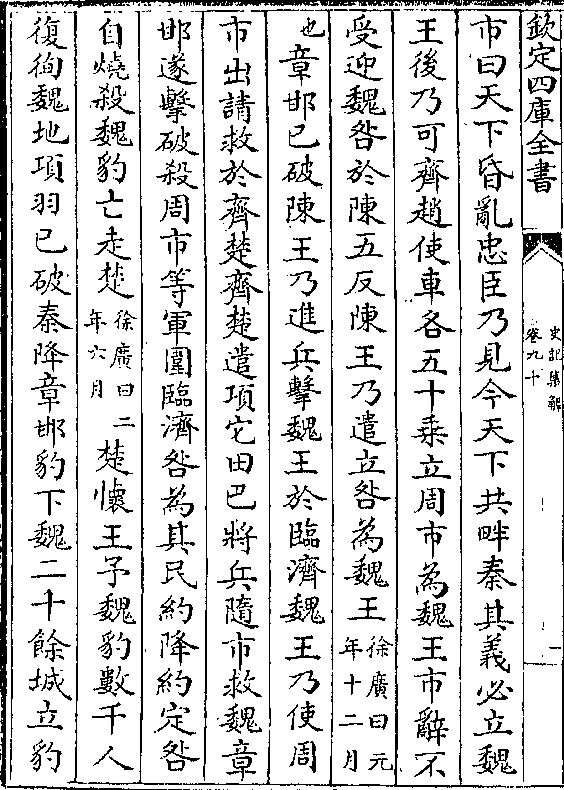 欽定四庫全書
史記集解
卷九十
市曰天下昏亂忠臣乃見今天下共畔秦其義必立魏
王後乃可齊趙使車各五十乗立周市為魏王市辭不
受迎魏咎於陳五反陳王乃遣立咎為魏王徐廣曰元年十二月
也章邯已破陳王乃進兵擊魏王於臨濟魏王乃使周
市出請救於齊楚齊楚遣項它田巴將兵隨市救魏章
邯遂擊破殺周市等軍圍臨濟咎為其民約降約定咎
自燒殺魏豹亡走楚徐廣曰二年六月楚懷王予魏豹數千人
復徇魏地項羽已破秦降章邯豹下魏二十餘城立豹